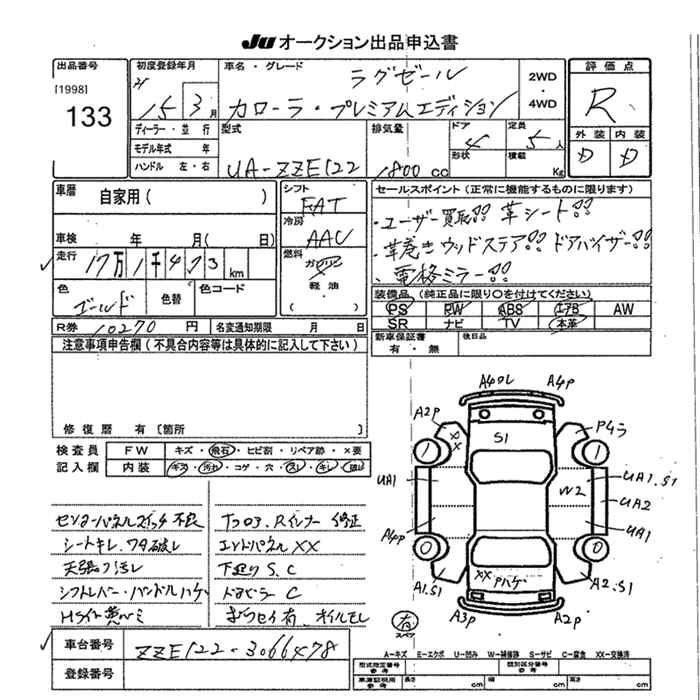 JU オークション出品申込書
出品番号
[1998]
133
初度登録年月
15 3月
車名・グレード
ラグゼール
カローラ・プレミアムエディション
2WD
・
4WD
評価点
R
外装 内装
D D
ディーラー・並行
モデル年式 年
ハンドル 左・右
型式
UA-ZZE122
排気量
1800 cc
ドア
4
形状
定員
5人
積載
Kg
車歴
自家用( )
車検 年 月( 日)
走行 17万1千473 km
色
ゴールド
色替
色コード
シフト
FAT
冷房
AAC
燃料
ガソリン
軽油
( )
セールスポイント(正常に機能するものに限ります)
・ユーザー買取!! 革シート!!
・革巻きウッドステア!! ドアバイザー!!
、電格ミラー!!
装備品(純正品に限り○を付けてください)
PS RW ABS エアB AW
SR ナビ TV 本革
新車保証書
有・無
後日品
R券 10270 円
名変通知期限 月 日
注意事項申告欄(不具合内容等は具体的に記入して下さい)
修復歴 有(箇所 )
検査員
記入欄
FW キズ・飛石・ヒビ割・リペア跡・×要
内装 キズ・汚れ・コゲ・穴・スレ・キレ・破レ
センターパネルスイッチ不良
シートキレ.ワタ破レ
天張リ汚レ
シフトレバー・ハンドルハゲ
コアロス.Rインナー修正
エンドパネルXX
下廻りS.C
C
有.オイルモレ
A4OL A4P
A2P
XX
S1
P4ラ
1 1
UA1
UA1.S1
W2
UA2
A4PP
UA1
0 0
A1.S1
XX Pハゲ
A2.S1
有
スペア
A3P A2P
車台番号 ZZE122-3066478
登録番号
A-キズ E-エクボ U-凹み W-補修跡 S-サビ C-腐食 XX-交換済
型式指定番号
参考
類別区分番号
参考
車庫証明用
参考
長さ cm
幅 cm
高さ cm